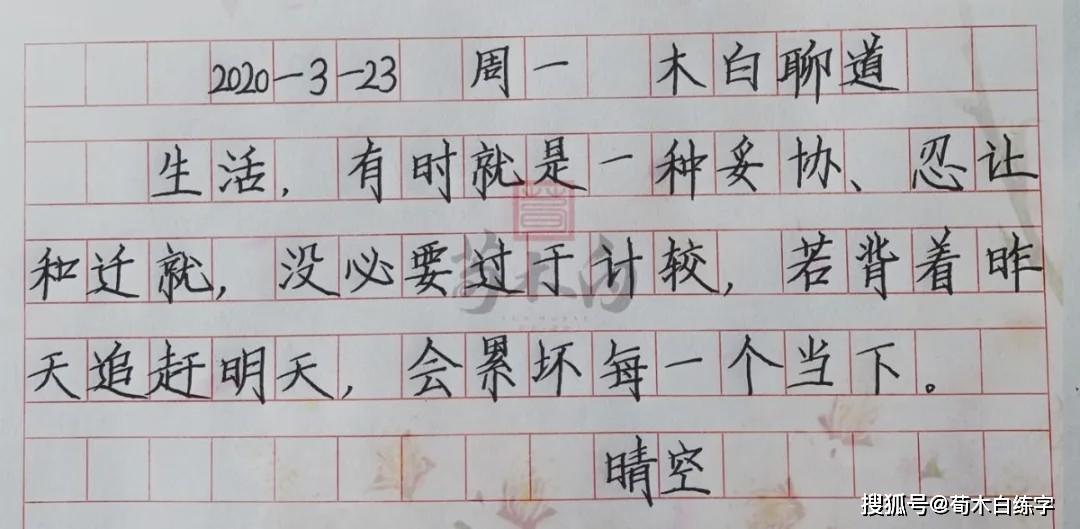 2020-3-23 周一 木白聊道
生活，有时就是一种妥协、忍让
和迁就，没必要过于计较，若背着昨
天追赶明天，会累坏每一个当下。
晴空
荀木白
搜狐号@荀木白练字